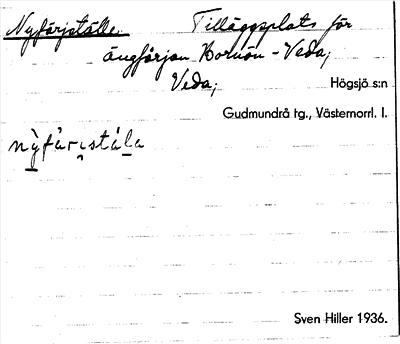 Nyfärjställe. Tilläggsplats för
ångfärjan Hornön - Veda;
Veda; Högsjö s:n
Gudmundrå tg., Västernorrl. l.
Sven Hiller 1936.